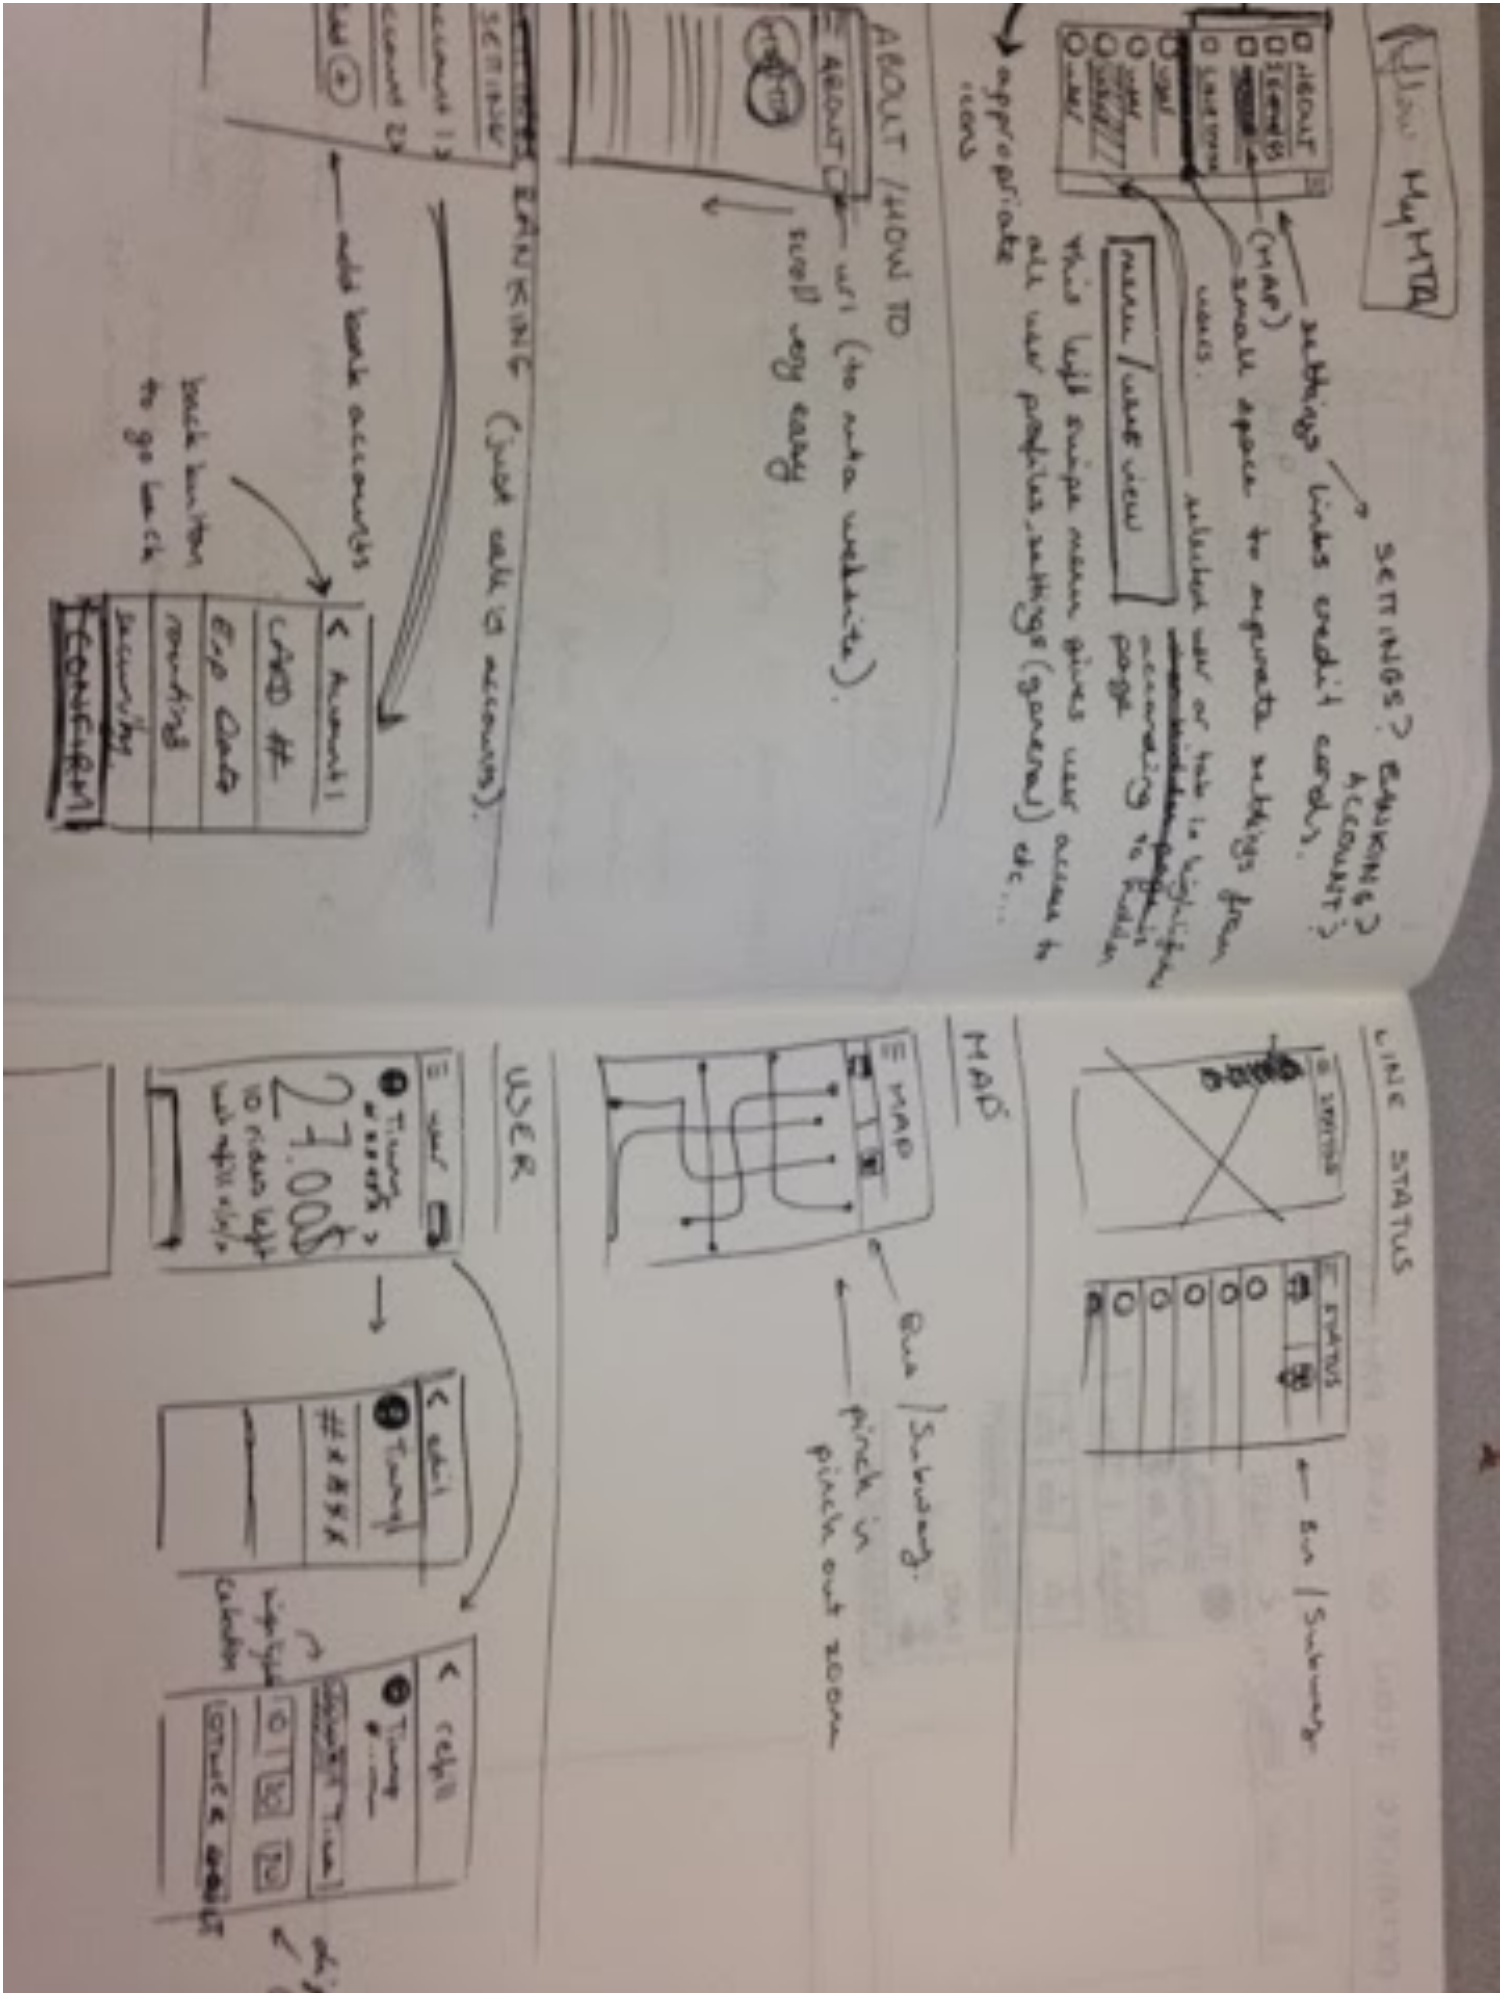 MyMTA
SETTINGS? BANKING?
ACCOUNT?
settings links credit cards.
(MAP) small space to separate settings from
users.
ABOUT
user
user
user
selected user or tab is highlighted
according to hidden
page
menu/user view
This left swipe menu gives user access to
all user profiles, settings (general) etc...
appropriate
icons
ABOUT / HOW TO
url (to mta website).
ABOUT
scroll very easy
BANKING (just call is accounts).
SETTINGS
account 1 >
account 2 >
Add +
add bank accounts
back button
to go back
< Account 1
CARD #
Exp Date
routing
security
CONFIRM
LINE STATUS
STATUS
STATUS
Bus / Subway
MAP
MAP
Bus / Subway.
pinch in
pinch out zoom
USER
user
>
27.00$
10 rides left
< edit
#####
< refill
Time
10
30
20
highlight